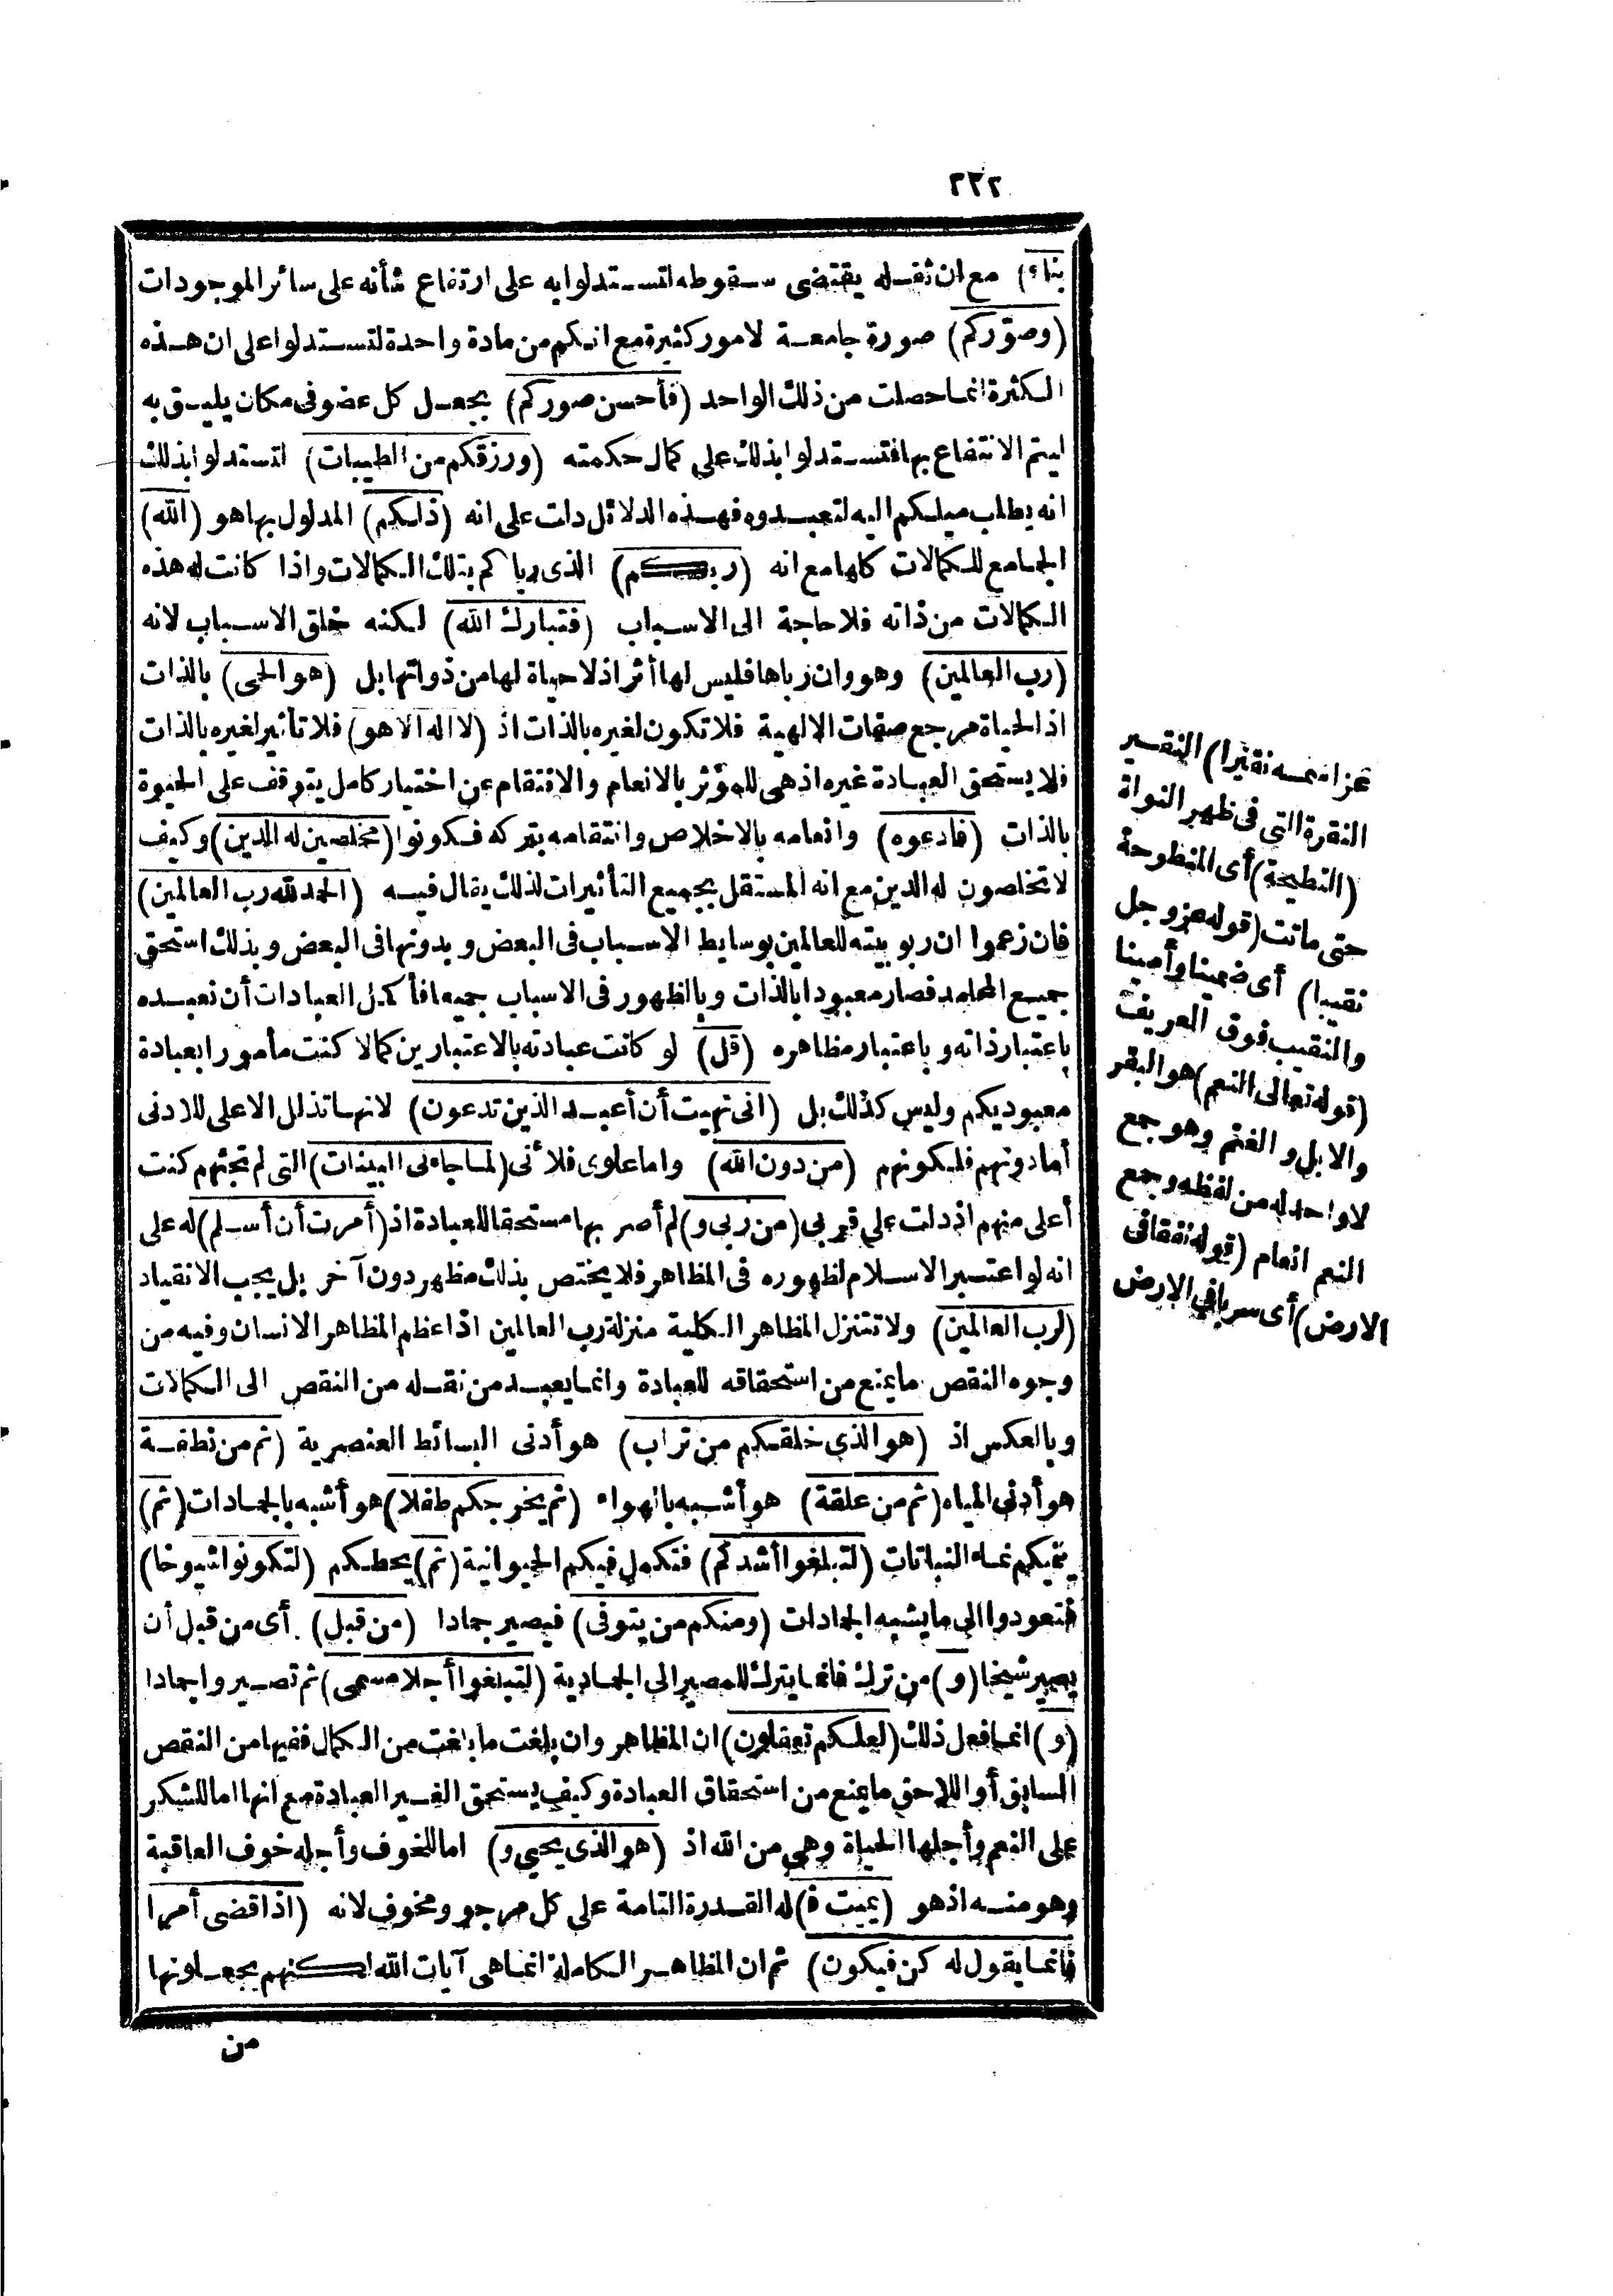 ٢٢٢
بناء) مع ان ثقله يقتضى سقوطه لتستدلوا به على ارتفاع شأنه على سائر الموجودات
(وصوّركم) صورة جامعة لامور كثيرة مع انكم من مادة واحدة لتستدلوا على ان هذه
الكثرة انما حصلت من ذلك الواحد (فأحسن صوركم) بجعل كل عضو فى مكان يليق به
ليتم الانتفاع بها فتستدلوا بذلك على كمال حكمته (ورزقكم من الطيبات) لتستدلوا بذلك
انه يطلب ميلكم اليه لتعبدوه فهذه الدلائل دلت على انه (ذلكم) المدلول بها هو (الله)
الجامع للكمالات كلها مع انه (ربكم) الذى رباكم بتلك الكمالات واذا كانت له هذه
الكمالات من ذاته فلا حاجة الى الاسباب (فتبارك الله) لكنه خلق الاسباب لانه
(رب العالمين) وهو وان رباها فليس لها أثر اذ لا حياة لها من ذواتها بل (هو الحى) بالذات
اذ الحياة مرجع صفات الالهية فلا تكون لغيره بالذات اذ (لا اله الا هو) فلا تأثير لغيره بالذات
فلا يستحق العبادة غيره اذ هى للمؤثر بالانعام والانتقام عن اختيار كامل يتوقف على الحيوة
بالذات (فادعوه) وانعامه بالاخلاص وانتقامه بتركه فكونوا (مخلصين له الدين) وكيف
لا تخلصون له الدين مع انه المستقل بجميع التأثيرات لذلك يقال فيه (الحمد لله رب العالمين)
فان زعموا ان ربوبيته للعالمين بوسايط الاسباب فى البعض وبدونها فى البعض وبذلك استحق
جميع المحامد فصار معبودا بالذات وبالظهور فى الاسباب جميعا فأكمل العبادات أن نعبده
باعتبار ذاته وباعتبار مظاهره (قل) لو كانت عبادته بالاعتبارين كمالا كنت مأمورا بعبادة
معبوديكم وليس كذلك بل (انى نهيت أن أعبد الذين تدعون) لانها تذلل الاعلى للادنى
أما دونهم فلكونهم (من دون الله) واما علوى فلأنى (لما جاءنى البينات) التى لم تجئهم كنت
أعلى منهم اذ دلت على قربى (من ربى و) لم أصر بها مستحقا للعبادة اذ (أمرت أن أسلم) له على
انه لو اعتبر الاسلام لظهوره فى المظاهر فلا يختص بذلك مظهر دون آخر بل يجب الانقياد
(لرب العالمين) ولا تتنزل المظاهر الكلية منزلة رب العالمين اذ اعظم المظاهر الانسان وفيه من
وجوه النقص ما يمنع من استحقاقه للعبادة وانما يعبد من نقله من النقص الى الكمالات
وبالعكس اذ (هو الذى خلقكم من تراب) هو أدنى البسائط العنصرية (ثم من نطفة
هو أدنى المياه (ثم من علقة) هو أشبه بالهواء (ثم يخرجكم طفلا) هو أشبه بالجمادات (ثم)
ينميكم نماء النباتات (لتبلغوا أشدكم) فتكمل فيكم الحيوانية (ثم) يحطكم (لتكونوا شيوخا)
فتعودوا الى ما يشبه الجمادات (ومنكم من يتوفى) فيصير جمادا (من قبل) أى من قبل أن
يصير شيخا (و) من ترك فانما يترك للمصير الى الجمادية (لتبلغوا أجلا مسمى) ثم تصيروا جمادا
(و) انما فعل ذلك (لعلكم تعقلون) ان المظاهر وان بلغت ما بلغت من الكمال ففيها من النقص
السابق أو اللاحق ما يمنع من استحقاق العبادة وكيف يستحق الغير العبادة مع انها اما للشكر
على النعم وأجلها الحياة وهى من الله اذ (هو الذى يحيى و) اما للخوف وأجله خوف العاقبة
وهو منه اذ هو (يميت ف) له القدرة التامة على كل مرجو ومخوف لانه (اذا قضى أمرا
فانما يقول له كن فيكون) ثم ان المظاهر الكاملة انما هى آيات الله لكنهم يجعلونها
من
النقرة التى فى ظهر النواة
(النطيحة) أى المنطوحة
حتى ماتت (قوله عز وجل
نقيبا) أى ضمينا وأمينا
والنقيب فوق العريف
(قوله تعالى النعم) هو البقر
والابل والغنم وهو جمع
لا واحد له من لفظه وجمع
النعم انعام (قوله نفقا فى
الارض) أى سربا فى الارض